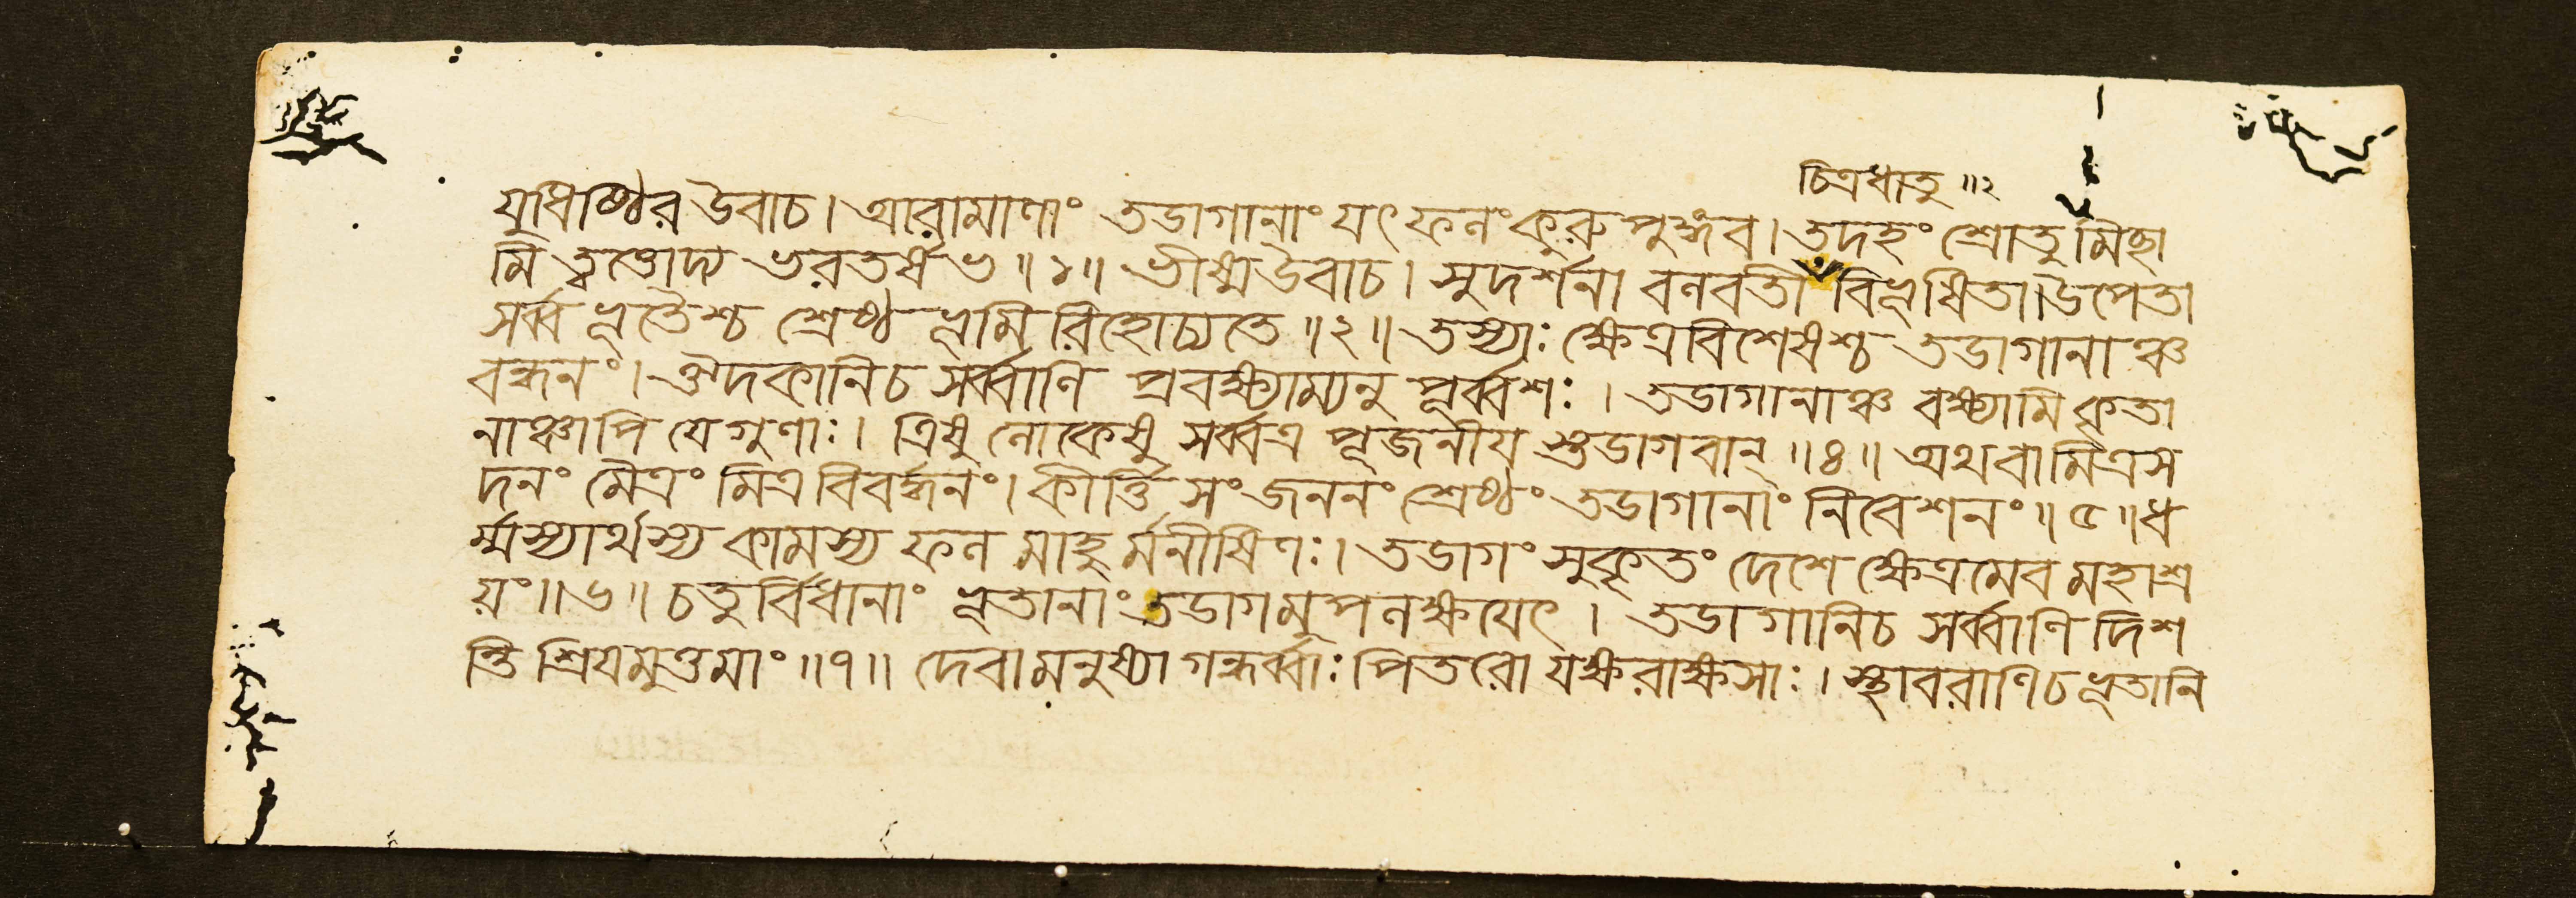 চিত্রধাতু ॥২
যুধিষ্ঠির উবাচ। আরামাণাং তডাগানাং যৎ ফলং কুরুপুঙ্গব। তদহং শ্রোতুমিচ্ছা
মি ত্বত্তোদ্য ভরতর্ষভ ॥১॥ ভীষ্মউবাচ। সুদর্শনা বলবতী বিভূষিতা। উপেতা
সর্ব্বভূতৈশ্চ শ্রেষ্ঠ ভূমিরিহোচ্যতে ॥২॥ তস্যাঃ ক্ষেত্রবিশেষশ্চ তডাগানাঞ্চ
বন্ধনং। ঔদকানিচ সর্ব্বাণি প্রবক্ষ্যাম্যনুপূর্ব্বশঃ। তডাগানাঞ্চ বক্ষ্যামি কৃতা
নাঞ্চাপি যেগুণাঃ। ত্রিষু লোকেষু সর্ব্বত্র পূজনীয স্তডাগবান্ ॥৪॥ অথবা মিত্রস
দনং মৈত্রং মিত্রবিবর্দ্ধনং। কীর্ত্তিসংজননং শ্রেষ্ঠং তডাগানাং নিবেশনং ॥৫॥ ধ
র্ম্মস্যার্থস্য কামস্য ফল মাহুর্মনীষিণঃ। তডাগং সুকৃতং দেশে ক্ষেত্রমেব মহাশ্র
য়ং ॥৬॥ চতুর্বিধানাং ভূতানাং তডাগমুপলক্ষযেৎ। তডাগানিচ সর্ব্বাণি দিশ
ন্তি শ্রিযমুত্তমাং ॥৭॥ দেবা মনুষ্যা গন্ধর্ব্বাঃ পিতরো যক্ষরাক্ষসাঃ। স্থাবরাণিচ ভূতানি